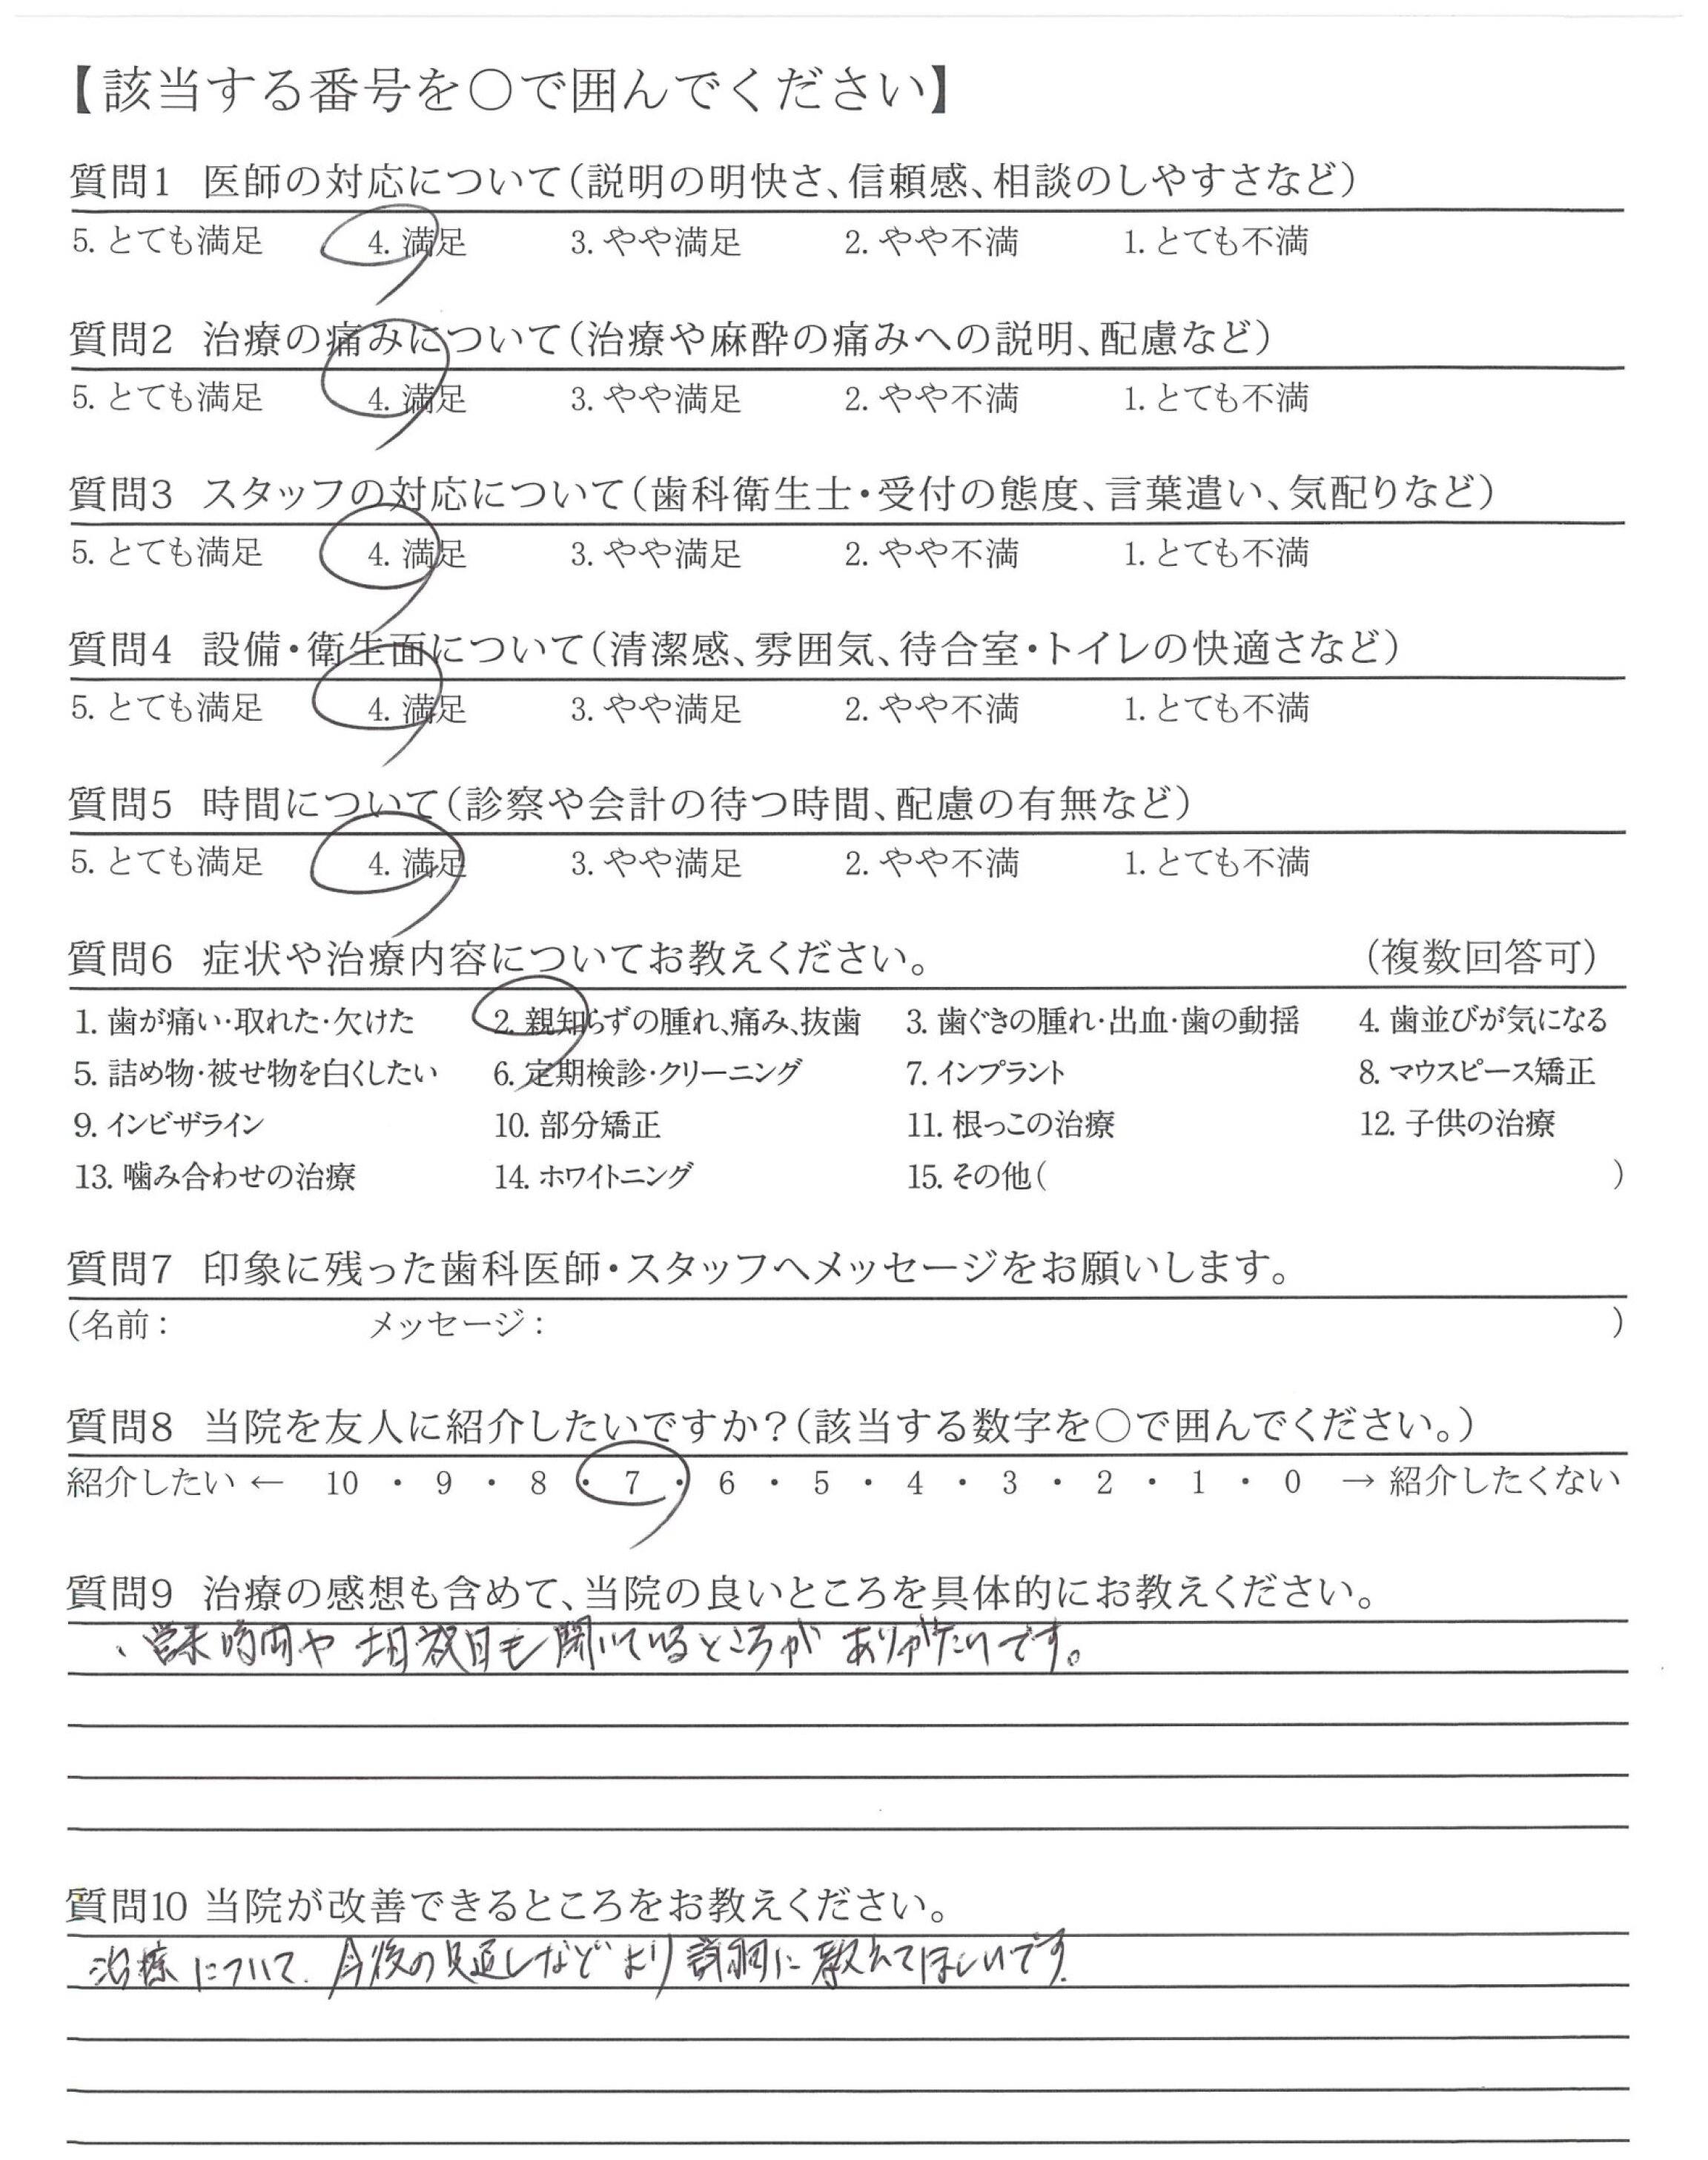 【該当する番号を○で囲んでください】
質問1 医師の対応について（説明の明快さ、信頼感、相談のしやすさなど）
5. とても満足 4. 満足 3. やや満足 2. やや不満 1. とても不満
質問2 治療の痛みについて（治療や麻酔の痛みへの説明、配慮など）
5. とても満足 4. 満足 3. やや満足 2. やや不満 1. とても不満
質問3 スタッフの対応について（歯科衛生士・受付の態度、言葉遣い、気配りなど）
5. とても満足 4. 満足 3. やや満足 2. やや不満 1. とても不満
質問4 設備・衛生面について（清潔感、雰囲気、待合室・トイレの快適さなど）
5. とても満足 4. 満足 3. やや満足 2. やや不満 1. とても不満
質問5 時間について（診察や会計の待つ時間、配慮の有無など）
5. とても満足 4. 満足 3. やや満足 2. やや不満 1. とても不満
質問6 症状や治療内容についてお教えください。 （複数回答可）
1. 歯が痛い・取れた・欠けた 2. 親知らずの腫れ、痛み、抜歯 3. 歯ぐきの腫れ・出血・歯の動揺 4. 歯並びが気になる
5. 詰め物・被せ物を白くしたい 6. 定期検診・クリーニング 7. インプラント 8. マウスピース矯正
9. インビザライン 10. 部分矯正 11. 根っこの治療 12. 子供の治療
13. 噛み合わせの治療 14. ホワイトニング 15. その他( )
質問7 印象に残った歯科医師・スタッフへメッセージをお願いします。
(名前： メッセージ： )
質問8 当院を友人に紹介したいですか？（該当する数字を○で囲んでください。）
紹介したい ← 10 ・ 9 ・ 8 ・ 7 ・ 6 ・ 5 ・ 4 ・ 3 ・ 2 ・ 1 ・ 0 → 紹介したくない
質問9 治療の感想も含めて、当院の良いところを具体的にお教えください。
、営業時間や土日祝日も開いているところがありがたいです。
質問10 当院が改善できるところをお教えください。
治療について、今後の見通しなどより詳細に教えてほしいです。